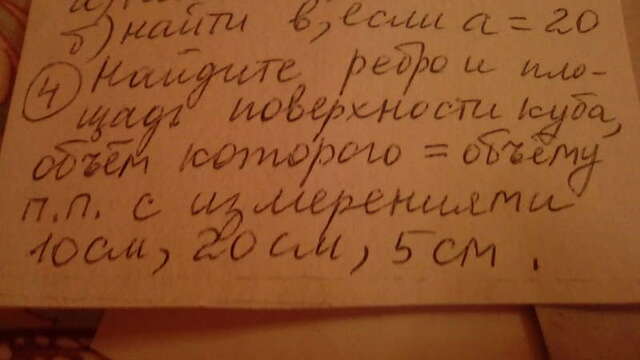 б) найти в, если а = 20
④ Найдите ребро и пло-
щадь поверхности куба,
объём которого = объёму
п.п. с измерениями
10 см, 20 см, 5 см.